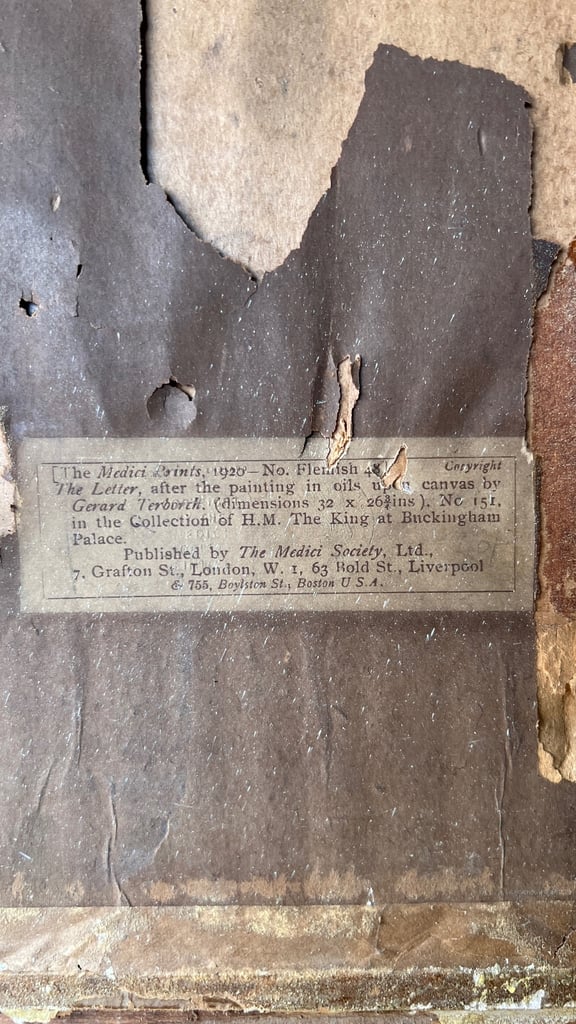 [The Medici Prints, 1920—No. Flemish 48. Copyright
The Letter, after the painting in oils upon canvas by
Gerard Terborch. (dimensions 32 x 26¾ins). No 151,
in the Collection of H.M. The King at Buckingham
Palace.
Published by The Medici Society, Ltd.,
7, Grafton St., London, W. 1, 63 Bold St., Liverpool
& 755, Boylston St., Boston U S.A.